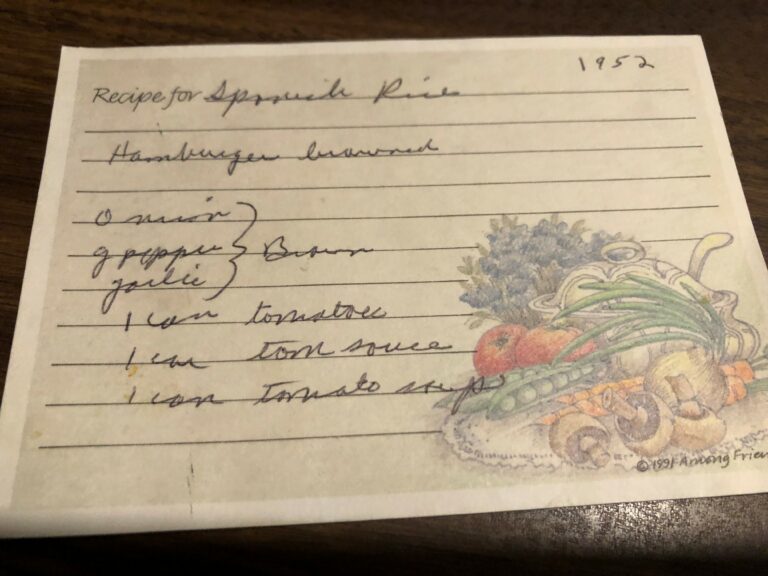 1952
Recipe for Spanish Rice
Hamburger browned
Onion
g pepper } Brown
garlic
1 can tomatoes
1 can tom sauce
1 can tomato soup
©1991 Among Frien